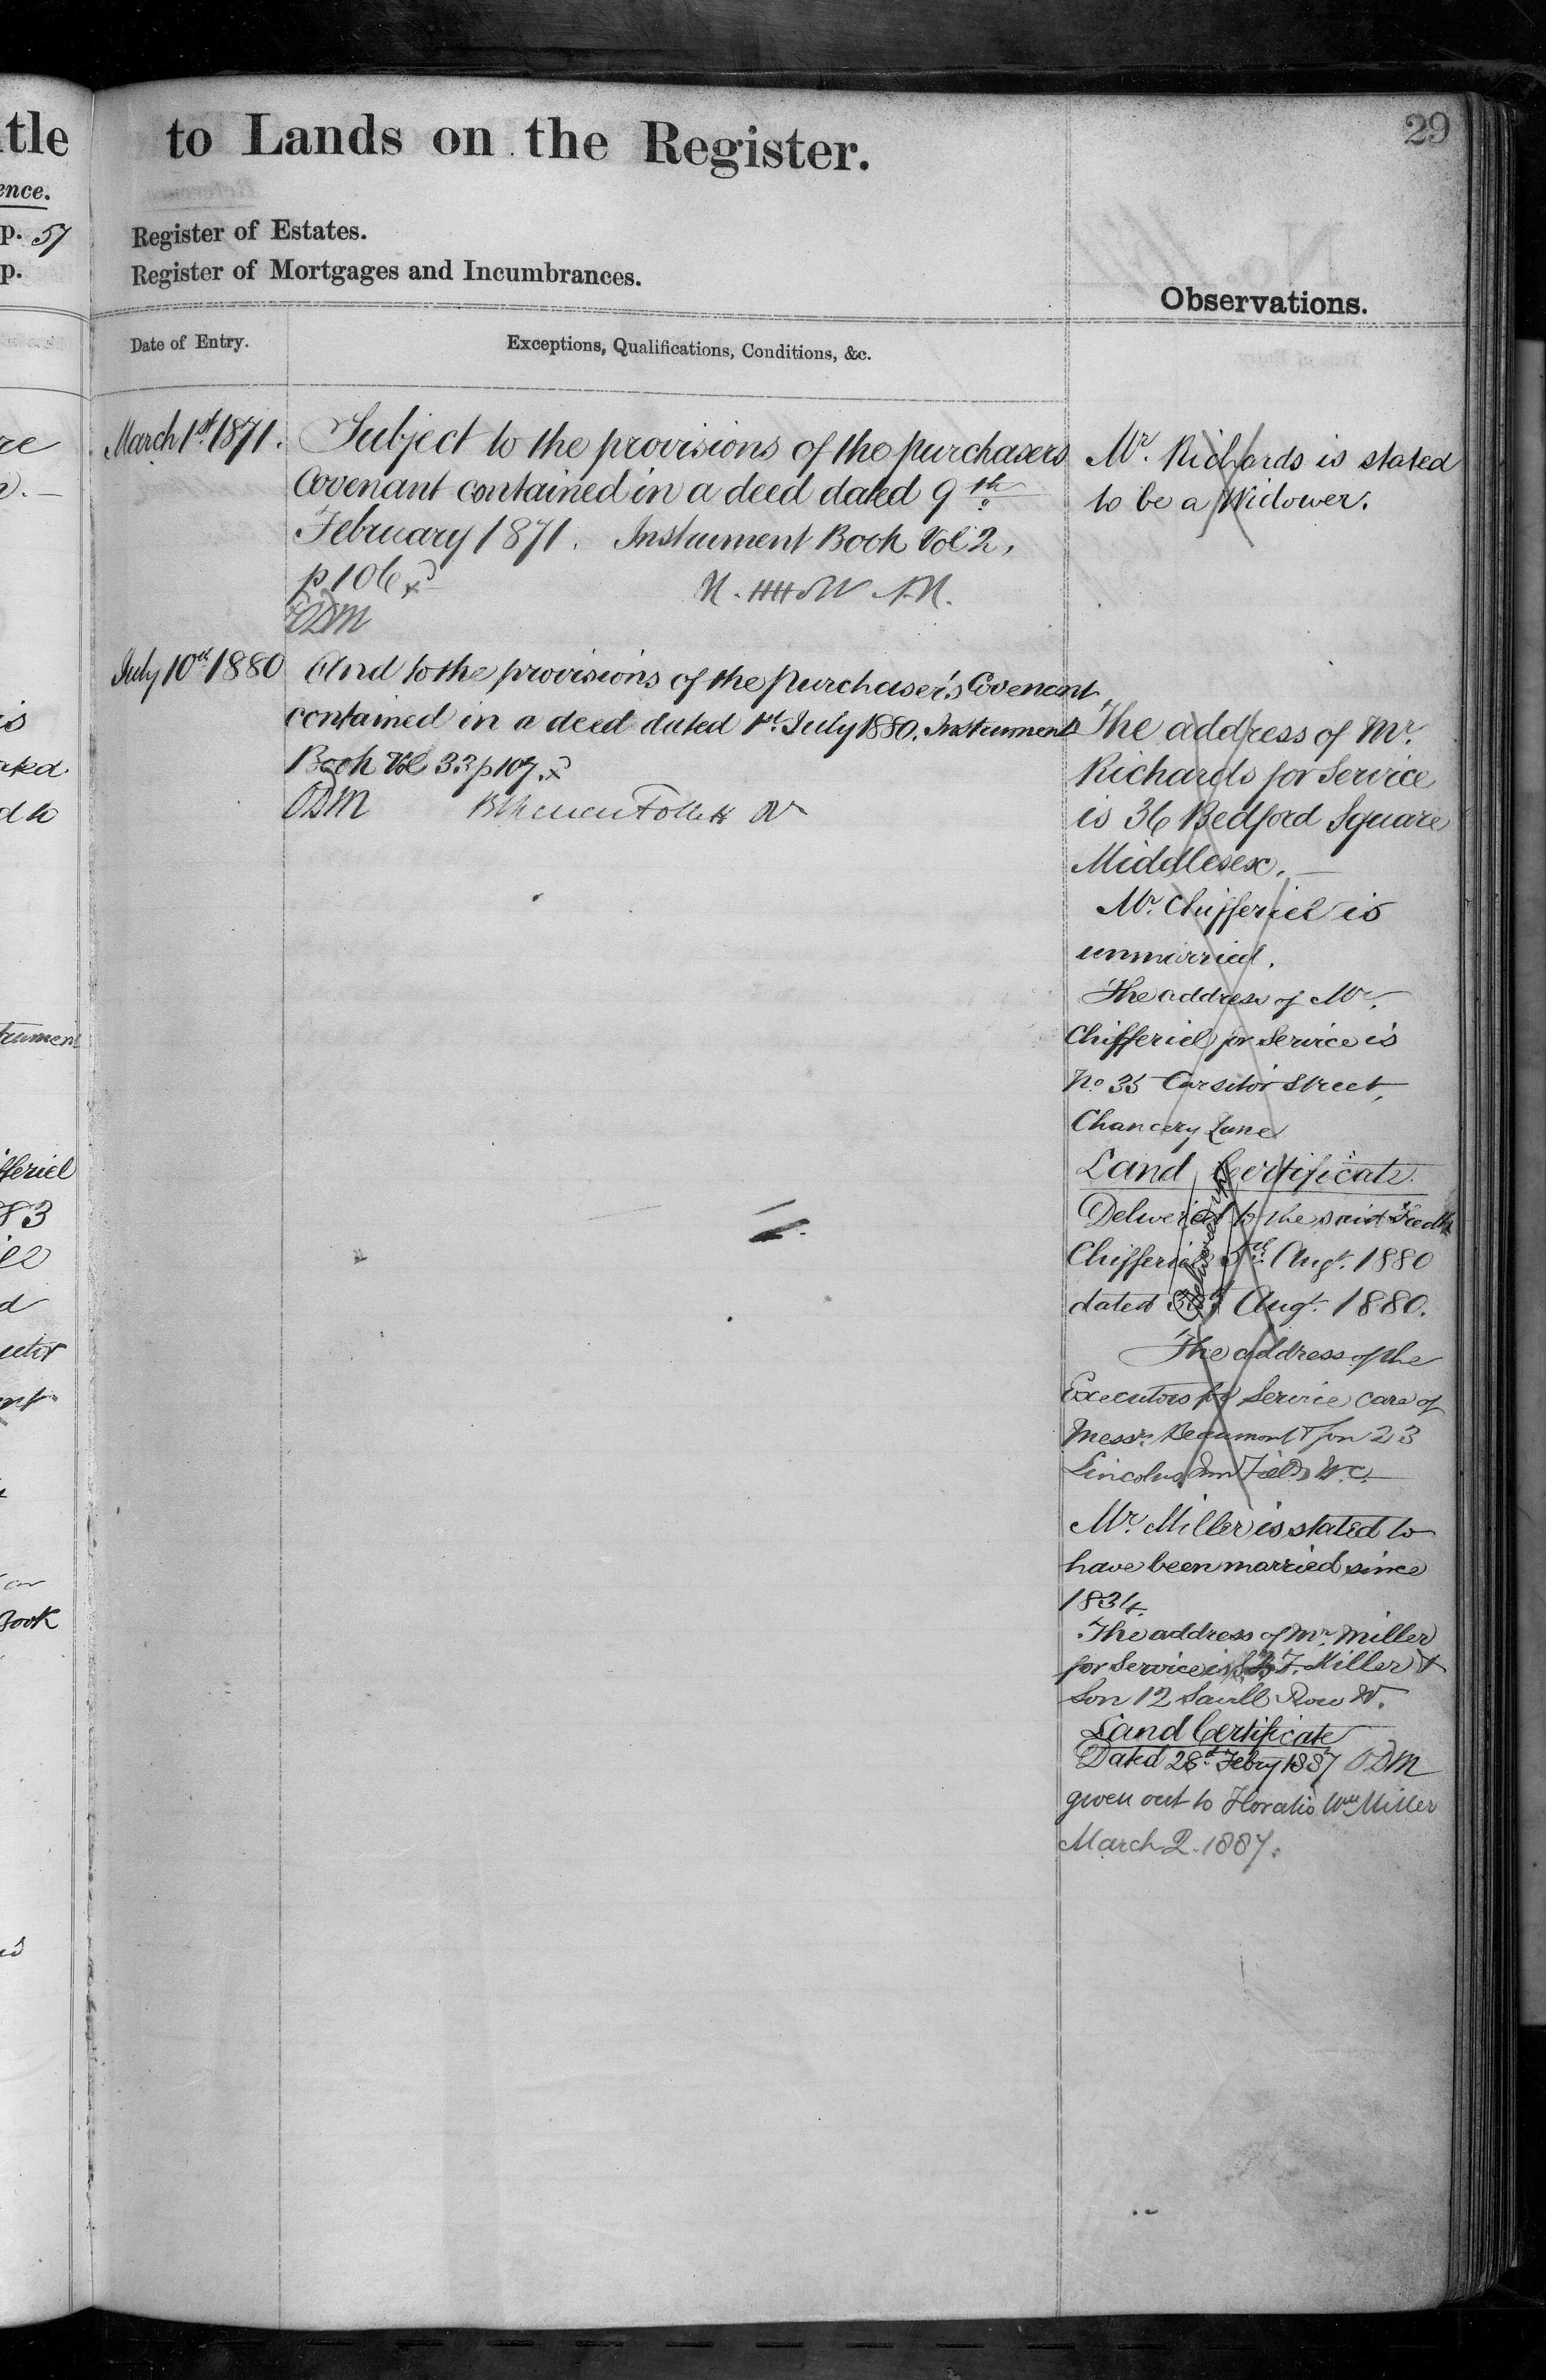 29
tle to Lands on the Register.
ence.
p. 57 Register of Estates.
p. Register of Mortgages and Incumbrances.
Observations.
Date of Entry. Exceptions, Qualifications, Conditions, &c.
March 1st 1871. Subject to the provisions of the purchasers
Covenant contained in a deed dated 9th
February 1871. Instrument Book Vol 2,
p 106
ODM
July 10th 1880 And to the provisions of the purchaser's Covenant
contained in a deed dated 1st July 1880. Instrument
Book Vol 33 p 107
ODM Follett
Mr. Richards is stated
to be a Widower.
The address of Mr.
Richards for Service
is 36 Bedford Square
Middlesex.
Mr. Chifferiel is
unmarried.
The address of Mr.
Chifferiel for Service is
No 35 Cursitor Street,
Chancery Lane
Land Certificate
Delivered to the said Fredk
Chifferiel 5th Augt. 1880
dated 3rd Augt. 1880.
The address of the
Executors for Service care of
Messrs. Beaumont & Son 23
Lincolns Inn Fields W.C.
Mr. Miller is stated to
have been married since
1834.
The address of Mr. Miller
for Service is T. Miller &
Son 12 Savill Row W.
Land Certificate
Dated 28th Febry 1887 ODM
given out to Horatio Wm Miller
March 2. 1887.
trument
fferiel
83
d
Book